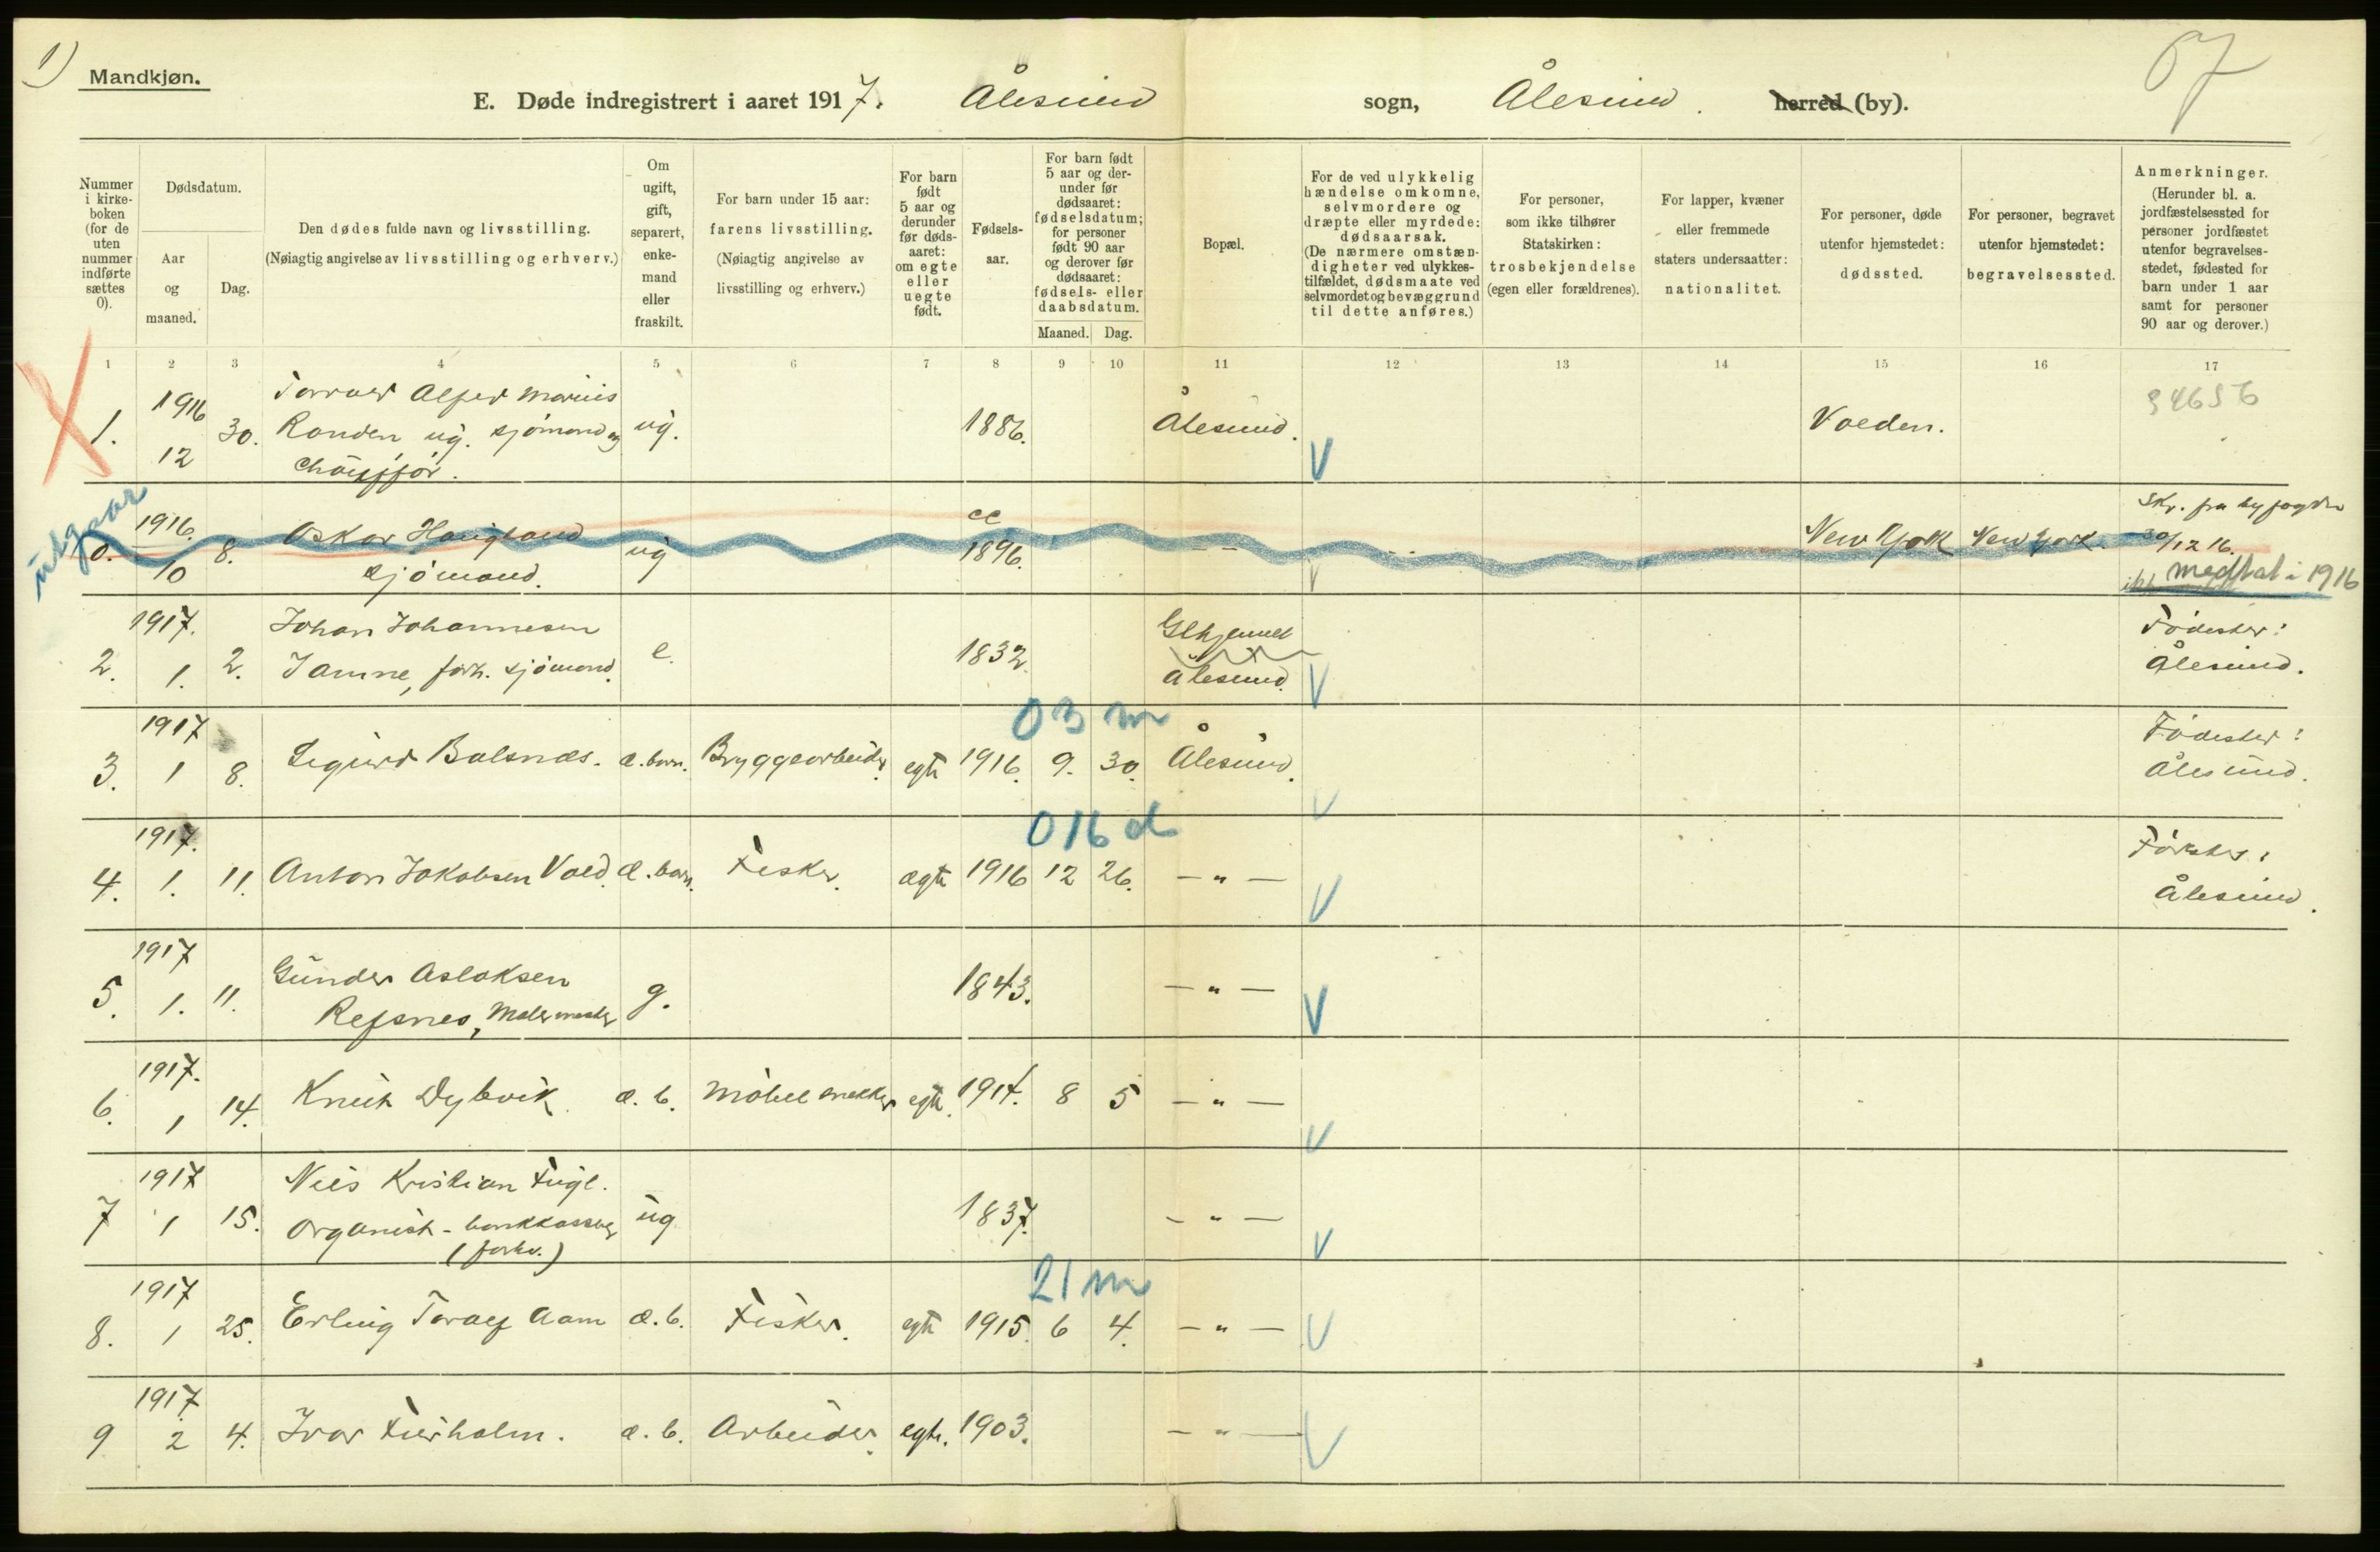 1)
Mandkjøn.
67
E. Døde indregistrert i aaret 1917. Ålesund sogn, Ålesund. herred (by).
Nummer i kirke-boken (for de uten nummer indførte sættes 0).
Dødsdatum.
Aar og maaned.
Dag.
Den dødes fulde navn og livsstilling.
(Nøiagtig angivelse av livsstilling og erhverv.)
Om ugift, gift, separert, enke-mand eller fraskilt.
For barn under 15 aar:
farens livsstilling.
(Nøiagtig angivelse av livsstilling og erhverv.)
For barn født 5 aar og derunder før døds-aaret: om egte eller uegte født.
Fødsels-aar.
For barn født 5 aar og der-under før dødsaaret: fødselsdatum; for personer født 90 aar og derover før dødsaaret: fødsels- eller daabsdatum.
Maaned. Dag.
Bopæl.
For de ved ulykkelig hændelse omkomne, selvmordere og dræpte eller myrdede: dødsaarsak. (De nærmere omstæn-digheter ved ulykkes-tilfældet, dødsmaate ved selvmordet og bevæggrund til dette anføres.)
For personer, som ikke tilhører Statskirken: trosbekjendelse (egen eller forældrenes).
For lapper, kvæner eller fremmede staters undersaatter: nationalitet.
For personer, døde utenfor hjemstedet: dødssted.
For personer, begravet utenfor hjemstedet: begravelsessted.
Anmerkninger.
(Herunder bl. a. jordfæstelsessted for personer jordfæstet utenfor begravelses-stedet, fødested for barn under 1 aar samt for personer 90 aar og derover.)
1 2 3 4 5 6 7 8 9 10 11 12 13 14 15 16 17
1916 Alfred Marius 34656
1. 12 30. Randen ug. sjømand og ug. 1886. Ålesund. V Volden.
Chauffør.
utgaar
1916. Oskar Haugland cc Skr. fra byfogden
0. 10 8. ug 1896. - - New York New York. 30/12 16.
sjømand. V ikke medtat i 1916
1917. Johan Johannesen Glhjemmet Fødested:
2. 1. 2. Jamne, forh. sjømand. e. 1832. Ålesund. V Ålesund.
03 m
1917 Fødested:
3. 1 8. Sigurd Balsnes. æ. barn. Bryggearbeider egte 1916. 9. 30. Ålesund. V Ålesund.
016 d
1917. Fødested:
4. 1. 11. Anton Jakobsen Vold. æ. barn. Fisker. ægte 1916 12 26. — " — V Ålesund.
1917 Gunder Aslaksen
5. 1. 11. Refsnes, Malermester g. 1843. — " — V
1917.
6. 1 14. Knut Dybvik. æ. b. Møbelsnekker egte. 1914. 8 5 — " — V
1917 Nils Kristian Fugl.
7 1 15. Organist - bankkasserer ug 1837. — " — V
(forhv.)
21 m
1917
8. 1 25. Erling Toralf Aam æ. b. Fisker. egte 1915. 6 4. — " — V
1917.
9 2 4. Ivar Furholm. æ. b. Arbeider. egte. 1903. — " — V